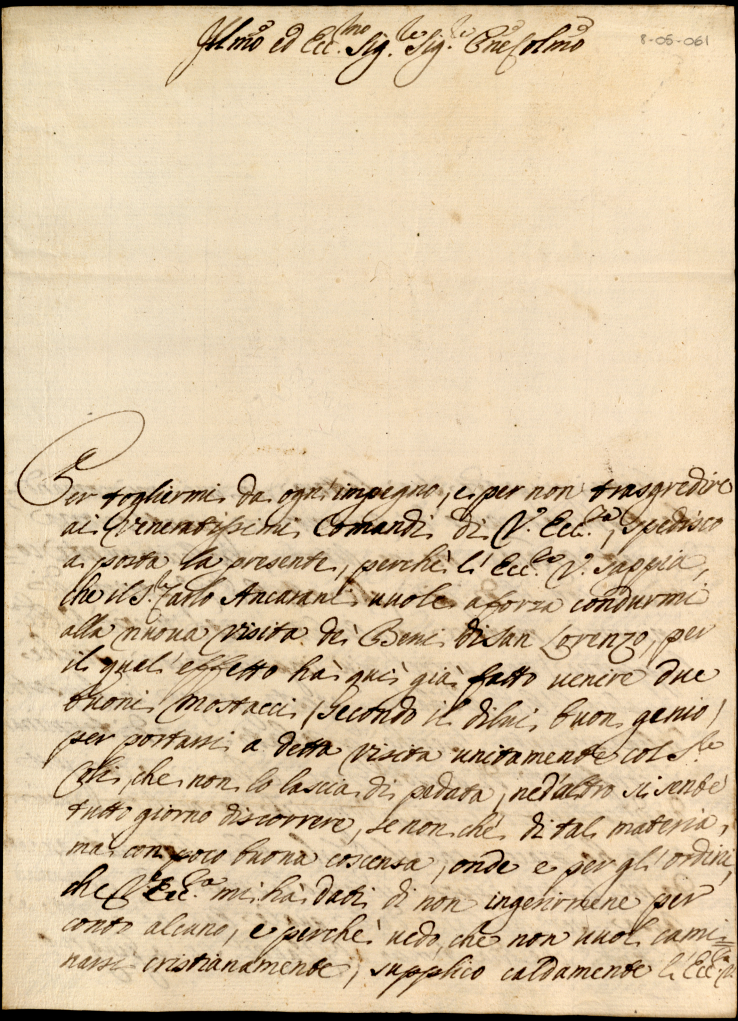 Illmo ed Ecc.mo Sig.re Sig.re Pne Colmo
8-05-061
Per togliermi da ogn'impegno, e per non trasgredire
ai veneratissimi Comandi di V. Ecc.a, spedisco
a posta la presente, perchè l'Ecc.a V. sappia,
che il S.r Carlo Ancarani vuole a forza condurmi
alla nuova visita dei Beni di San Lorenzo, per
il qual'effetto hà quì già fatto venire due
buoni Mostacci (secondo il dilui buon genio)
per portarsi a detta visita unitamente col S.re
che non lo lascia di pedata, ned'altro si sente
tutto giorno discorrere, se non che di tal materia,
ma con poco buona coscenza, onde e per gl'ordini,
che V. Ecc.a mi hà dati di non ingerirmene per
conto alcuno, e perchè vedo, che non vuol cami=
narsi cristianamente, supplico caldamente l'Ecc.a V.